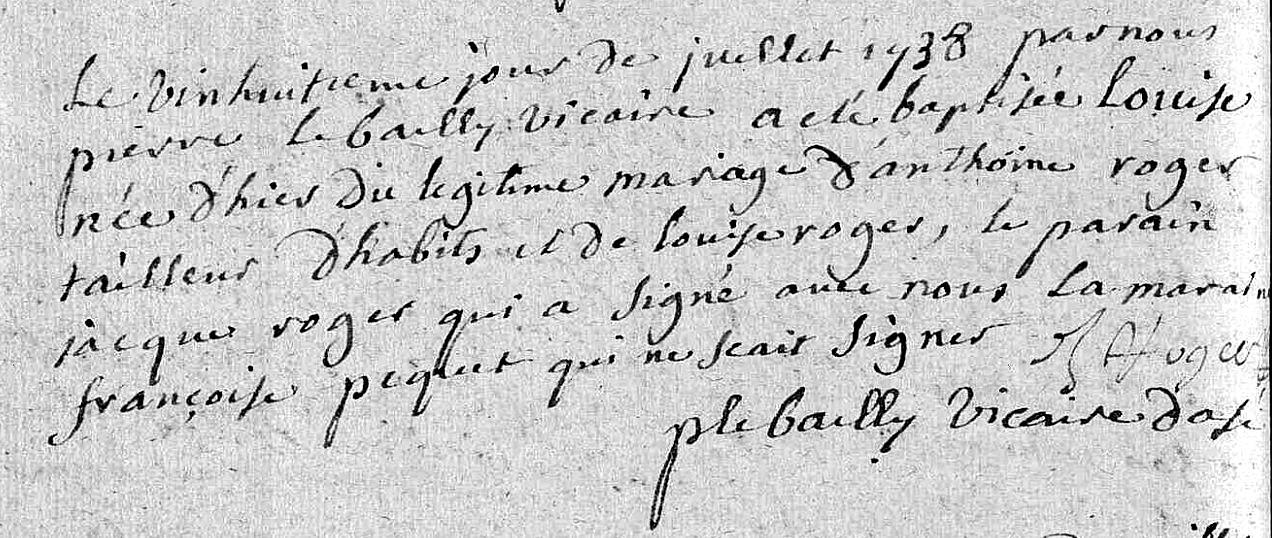 Le vinhuitieme jour de juillet 1738 par nous
pierre lebailly vicaire a eté baptisée Louise
née d'hier du legitime mariage d'anthoine roger
tailleur d'habits et de louise roger, le parain
jacque roger qui a signé avec nous La maraine
françoise pequet qui ne scait signer J Roger
plebailly vicaire dasé